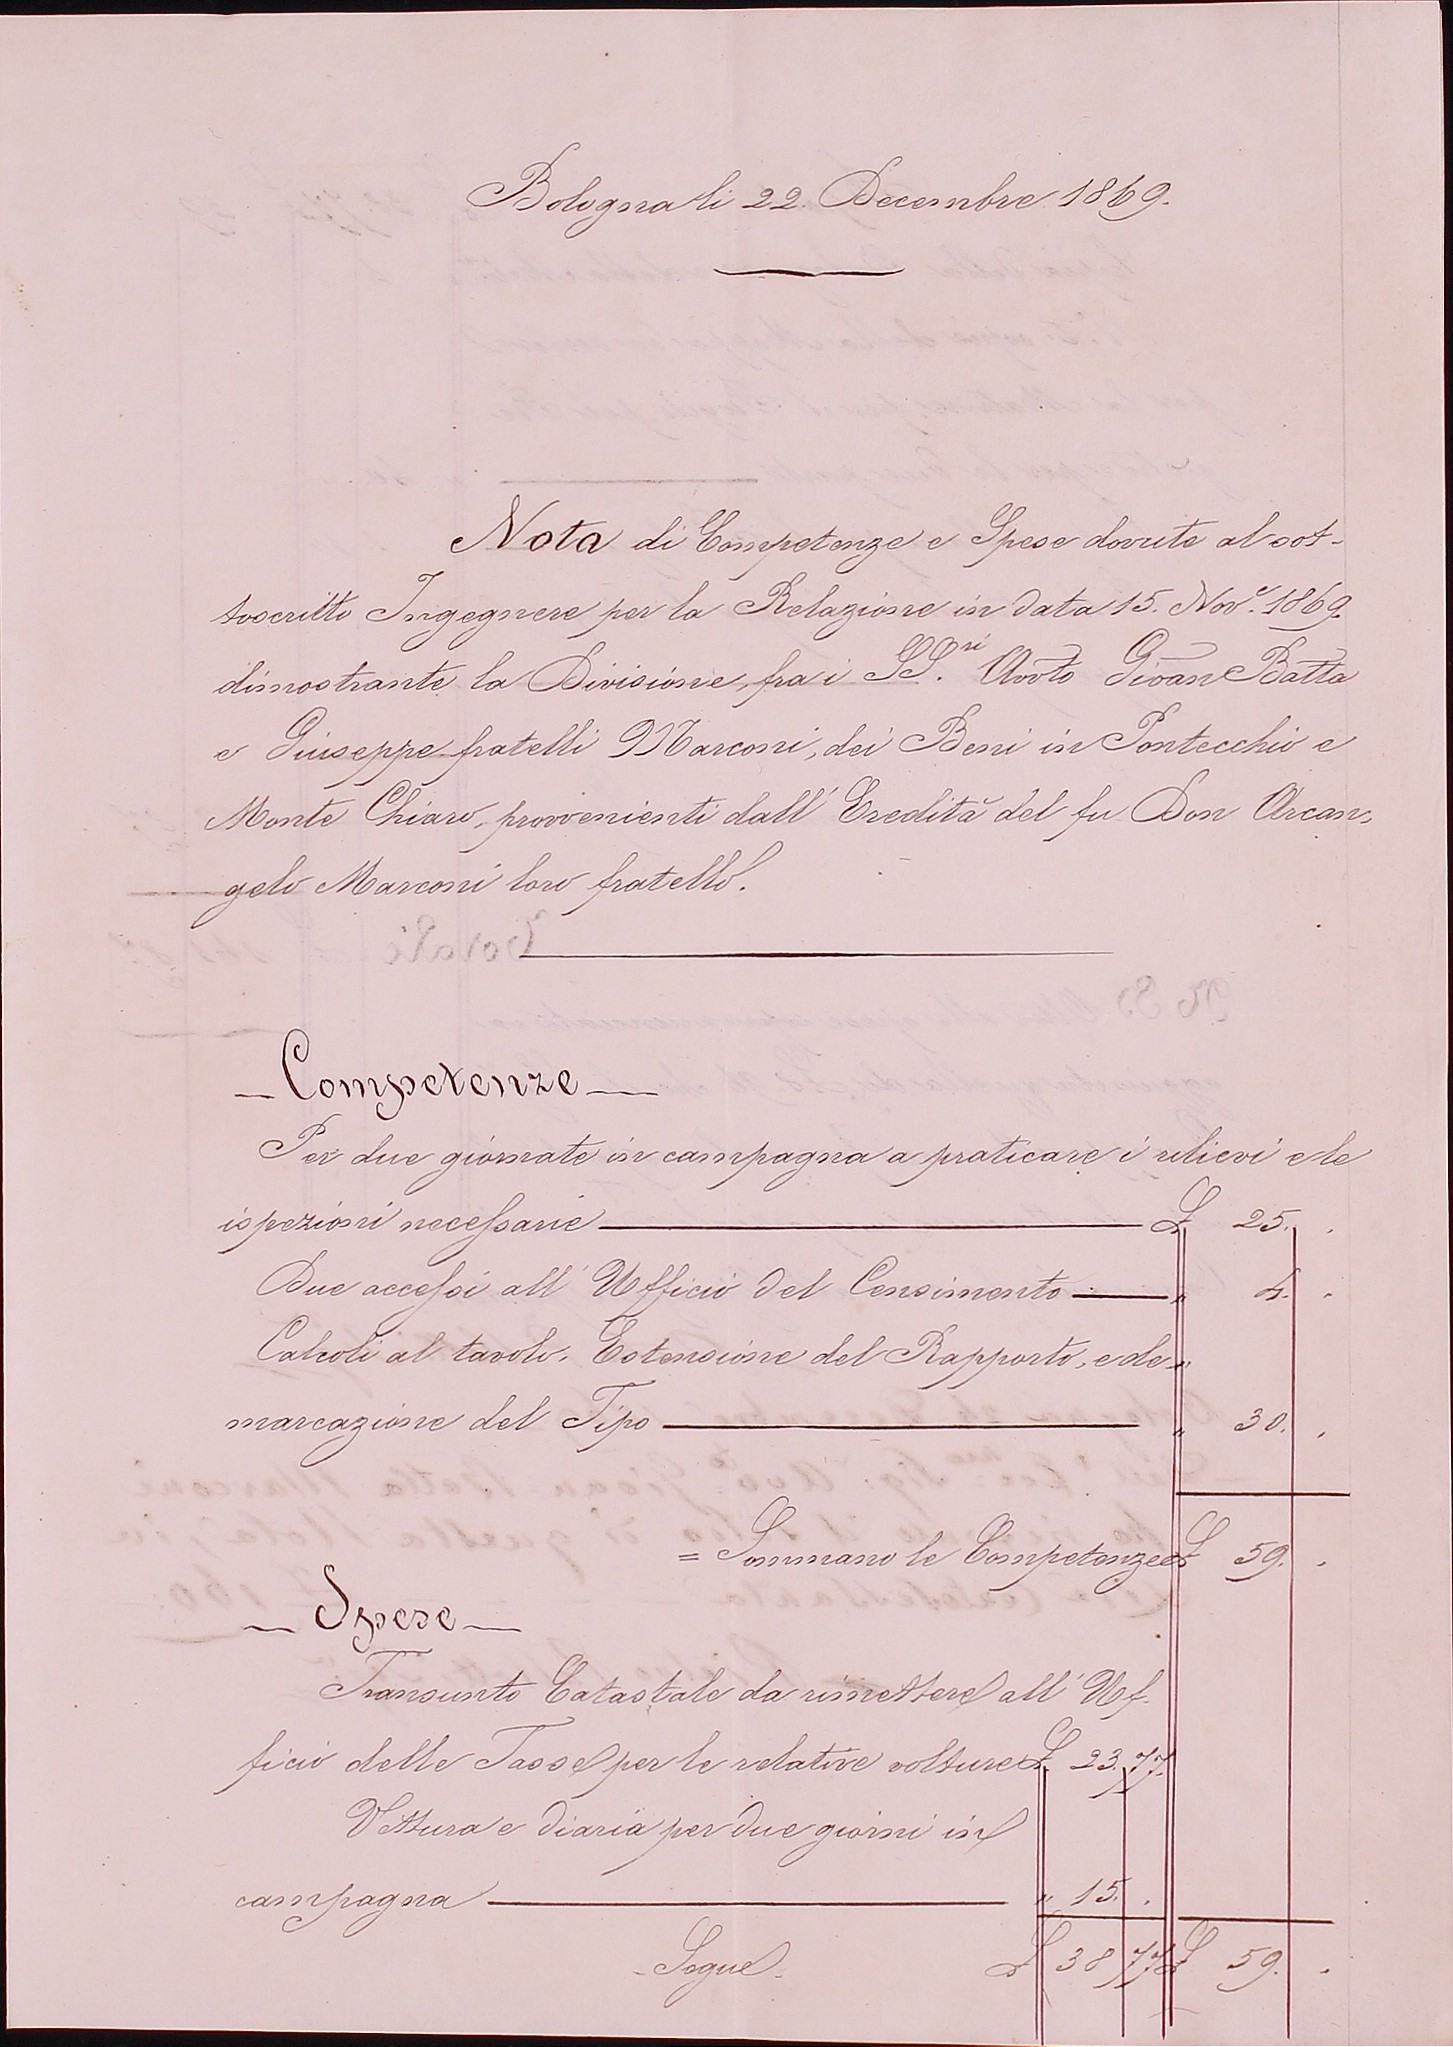 Bologna li 22. Decembre 1869.
Nota di Competenze e Spese dovute al sot-
toscritto Ingegnere per la Relazione in data 15. Nov.e 1869.
dimostrante la Divisione, fra i SS.ri Avvto Giovan Batta
e Giuseppe fratelli Marconi, dei Beni in Pontecchio e
Monte Chiaro, provvenienti dall' Eredità del fu Don Arcan,
gelo Marconi loro fratello.
- Competenze -
Per due giornate in campagna a praticare i rilievi e le
ispezioni necessarie £ 25. .
Due accessi all' Ufficio del Censimento " 4. .
Calcoli al tavolo, Estensione del Rapporto, e de- "
marcazione del Tipo " 30. .
= Sommano le Competenze £ 59. .
- Spese -
Transunto Catastale da rimettere all' Uf-
ficio delle Tasse per le relative volture £ 23. 77.
Vettura e diaria per due giorni in
campagna " 15. .
- Segue - £ 38 77 £ 59. .